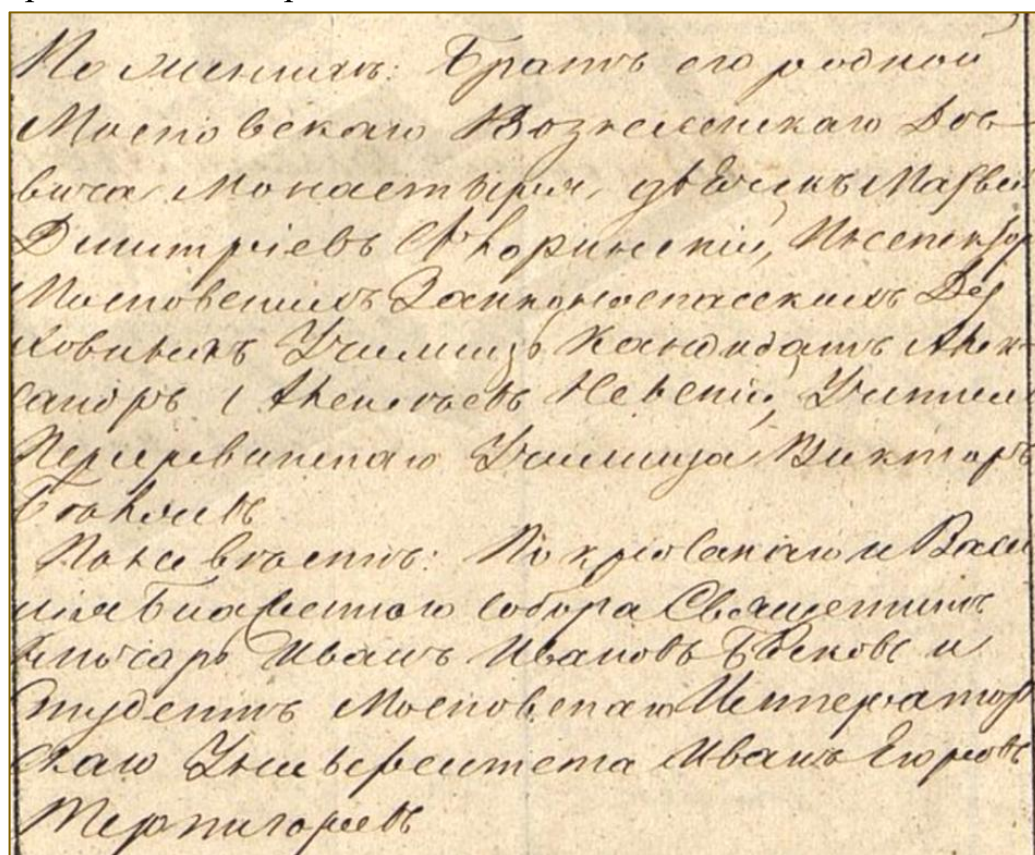 По женихѣ: Братъ его родной
Московскаго Вознесенскаго Дѣ-
вича Монастыря, дьячекъ Матвей
Дмитріевъ Скворинскій, Инспекторъ
Московскихъ Заиконоспасскихъ Ду
ховныхъ Училищъ Кандидатъ Алек-
сандръ Алексѣевъ Невскій, Учитель
Перервинскаго Училища Викторъ
По невѣстѣ: Покровскаго и Васи
лія Блаженнаго Собора Священникъ
Ключарь Иванъ Ивановъ Бѣсковъ и
Студентъ Московскаго Император
скаго Университета Иванъ Егоровъ
Терпигоревъ